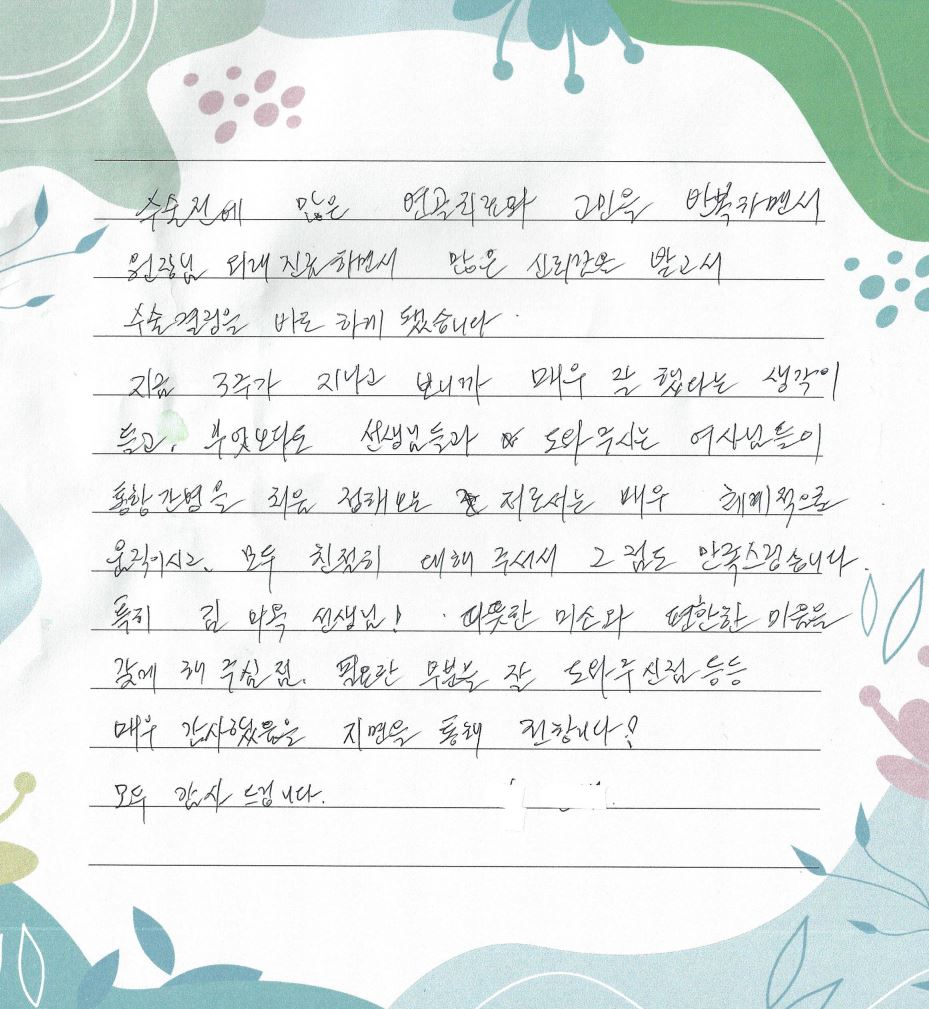 수술전에 많은 연골치료와 고민을 반복하면서
원장님 외래진료하면서 많은 신뢰감을 받고서
수술결정을 바로 하게 됐습니다.
지금 3주가 지나고 보니까 매우 잘 했다는 생각이
들고, 무엇보다도 선생님들과 도와주시는 여사님들이
통합간병을 처음 접해보는 저로서는 매우 체계적으로
움직이시고, 모두 친절히 대해 주셔서 그 점도 만족스럽습니다.
특히 김 선생님! 따뜻한 미소와 편한한 마음을
갖게 해 주심 점. 필요한 부분을 잘 도와주신점 등등
매우 감사했음을 지면을 통해 전합니다!
모두 감사 드립니다.